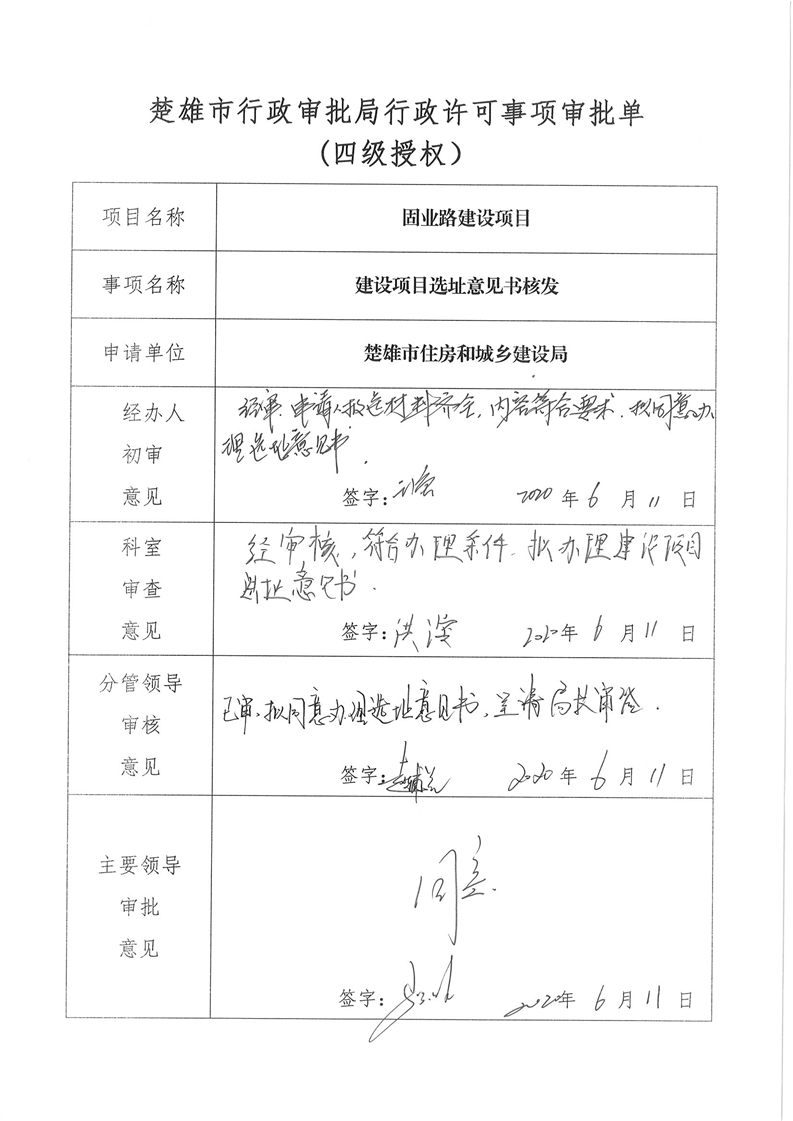 楚雄市行政审批局行政许可事项审批单
(四级授权)
项目名称 固业路建设项目
事项名称 建设项目选址意见书核发
申请单位 楚雄市住房和城乡建设局
经办人
初审
意见
经审，申请人报送材料齐全，内容符合要求，拟同意办
理选址意见书.
签字: 2020 年 6 月 11 日
科室
审查
意见
经审核，符合办理条件，拟办理建设项目
选址意见书.
签字: 洪滢 2020年 6 月 11 日
分管领导
审核
意见
已审，拟同意办理选址意见书，呈请局长审签.
签字: 2020 年 6 月 11 日
主要领导
审批
意见
同意.
签字: 2020年 6 月 11 日